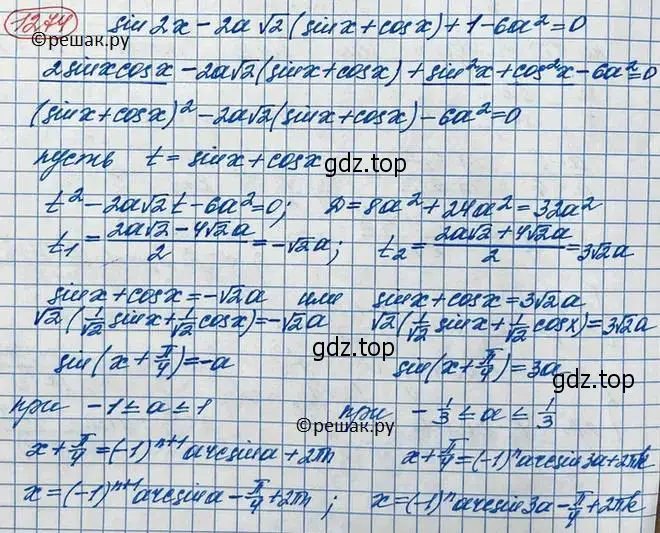 1274 sin2x - 2a√2 (sinx + cosx) + 1 - 6a² = 0
©reшak.ru
2sinxcosx - 2a√2(sinx + cosx) + sin²x + cos²x - 6a² = 0
(sinx + cosx)² - 2a√2(sinx + cosx) - 6a² = 0
пусть t = sinx + cosx
gdz.top
t² - 2a√2t - 6a² = 0; D = 8a² + 24a² = 32a²
t₁ = (2a√2 - 4√2a)/2 = -√2a; t₂ = (2a√2 + 4√2a)/2 = 3√2a
gdz.top
sinx + cosx = -√2a или sinx + cosx = 3√2a
√2(1/√2 sinx + 1/√2 cosx) = -√2a √2(1/√2 sinx + 1/√2 cosx) = 3√2a
gdz.top
sin(x + π/4) = -a sin(x + π/4) = 3a
при -1 ≤ a ≤ 1 при -1/3 ≤ a ≤ 1/3
©reшak.ru
x + π/4 = (-1)ⁿ⁺¹ arcsina + 2πn x + π/4 = (-1)ⁿ arcsin3a + 2πk
x = (-1)ⁿ⁺¹ arcsina - π/4 + 2πn; x = (-1)ⁿ arcsin3a - π/4 + 2πk
gdz.top